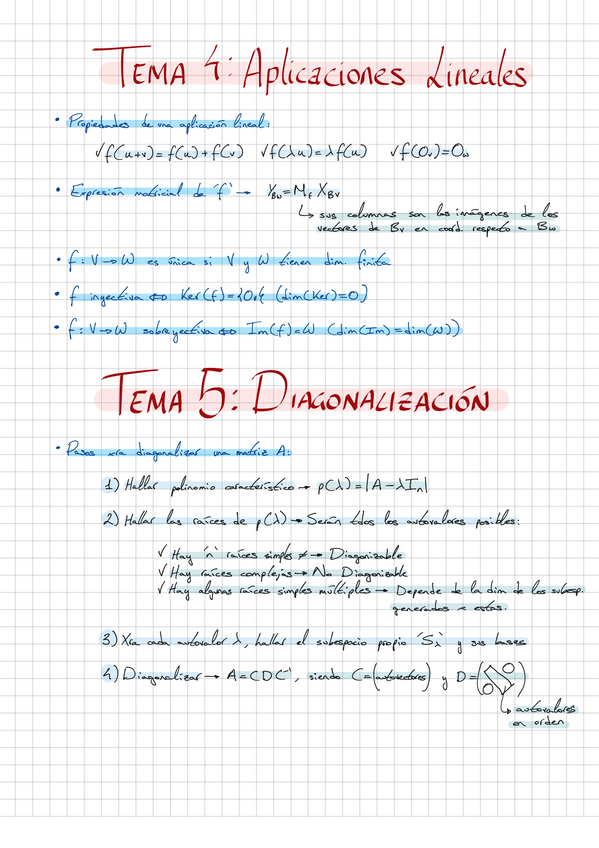 TEMA 4: Aplicaciones Lineales
• Propiedades de una aplicación lineal:
√ f(u+v)=f(u)+f(v) √ f(λu)=λf(u) √ f(0ᵥ)=0w
• Expresión matricial de 'f' → Y_Bw = M_f X_Bv
↳ sus columnas son las imágenes de los
vectores de Bv en coord. respecto a Bw
• f: V→W es única si V y W tienen dim. finita
• f inyectiva ⇔ Ker(f)={0ᵥ} (dim(Ker)=0)
• f: V→W sobreyectiva ⇔ Im(f)=W (dim(Im)=dim(W))
TEMA 5: DIAGONALIZACIÓN
• Pasos xra diagonalizar una matriz A:
1) Hallar polinomio característico → p(λ)=|A-λIₙ|
2) Hallar las raíces de p(λ) → Serán tdos los autovalores posibles:
√ Hay 'n' raíces simples ≠ → Diagonizable
√ Hay raíces complejas → No Diagonizable
√ Hay algunas raíces simples múltiples → Depende de la dim de los subesp.
generados x estas.
3) Xra cada autovalor λ, hallar el subespacio propio 'Sλ' y sus bases
4) Diagonalizar → A=CDC⁻¹, siendo C=(autovectores) y D=(0 0)
↳ autovalores
en orden